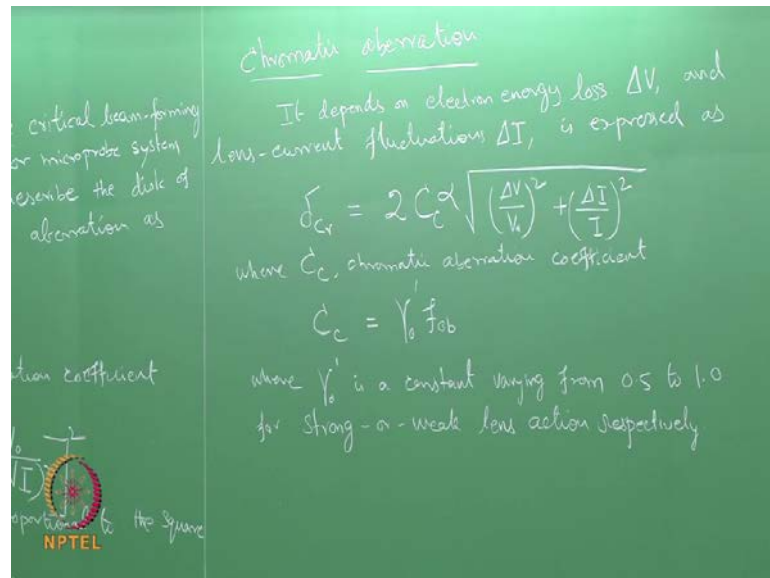 critical beam-forming
or microprobe system
describe the disk of
aberration as
ation coefficient
to the square
NPTEL
Chromatic aberration
It depends on electron energy loss ΔV, and
lens-current fluctuations ΔI, is expressed as
δ_Cr = 2 C_c α √((ΔV/V₀)² + (ΔI/I)²)
where C_c, chromatic aberration coefficient
C_c = γ₀' f_ob
where γ₀' is a constant varying from 0.5 to 1.0
for strong-or-weak lens action respectively